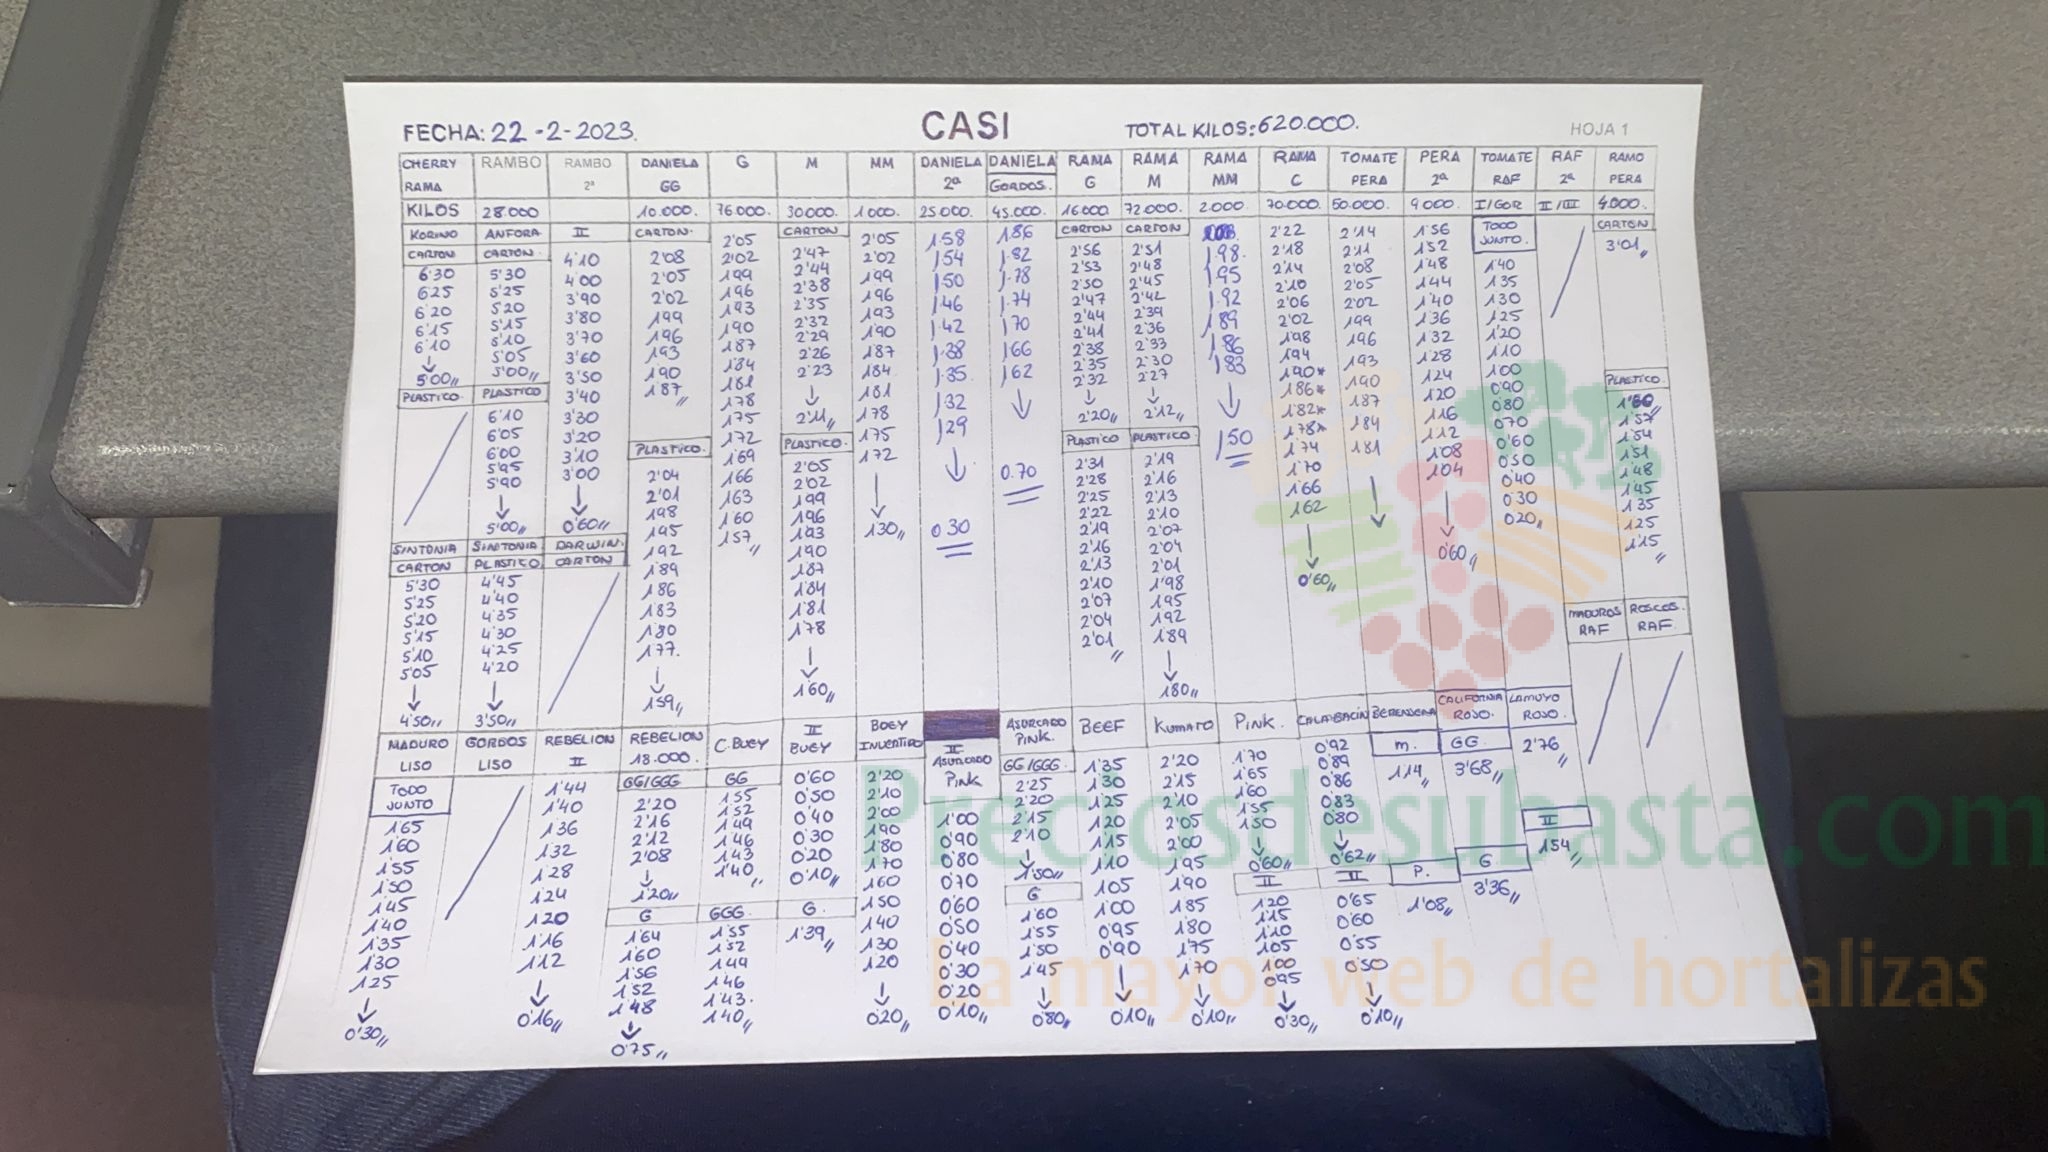 FECHA: 22-2-2023.
CASI
TOTAL KILOS: 620.000.
HOJA 1
CHERRY RAMA
KILOS
KORINO
CARTON
6'30
6'25
6'20
6'15
6'10
↓
5'00
PLASTICO
SINTONIA
CARTON
5'30
5'25
5'20
5'15
5'10
5'05
↓
4'50
RAMBO
28.000
ANFORA
CARTON
5'30
5'25
5'20
5'15
5'10
5'05
5'00
PLASTICO
6'10
6'05
6'00
5'95
5'90
↓
5'00
SINTONIA
PLASTICO
4'45
4'40
4'35
4'30
4'25
4'20
↓
3'50
RAMBO 2ª
II
4'10
4'00
3'90
3'80
3'70
3'60
3'50
3'40
3'30
3'20
3'10
3'00
↓
0'60
DARWIN
CARTON
DANIELA GG
10.000.
CARTON.
2'08
2'05
2'02
1'99
1'96
1'93
1'90
1'87
PLASTICO.
2'04
2'01
1'98
1'95
1'92
1'89
1'86
1'83
1'80
1'77.
↓
1'59
G
76.000.
2'05
2'02
1'99
1'96
1'93
1'90
1'87
1'84
1'81
1'78
1'75
1'72
1'69
1'66
1'63
1'60
1'57
M
30.000.
CARTON
2'47
2'44
2'38
2'35
2'32
2'29
2'26
2'23
↓
2'11
PLASTICO.
2'05
2'02
1'99
1'96
1'93
1'90
1'87
1'84
1'81
1'78
↓
1'60
MM
1000.
2'05
2'02
1'99
1'96
1'93
1'90
1'87
1'84
1'81
1'78
1'75
1'72
↓
1'30
DANIELA 2ª
25.000.
1'58
1'54
1'50
1'46
1'42
1'38
1'35
1'32
1'29
↓
0'30
DANIELA GORDOS.
45.000.
1'86
1'82
1'78
1'74
1'70
1'66
1'62
↓
0.70
RAMA G
16.000
CARTON
2'56
2'53
2'50
2'47
2'44
2'41
2'38
2'35
2'32
↓
2'20
PLASTICO
2'31
2'28
2'25
2'22
2'19
2'16
2'13
2'10
2'07
2'04
2'01
RAMA M
72.000.
CARTON
2'51
2'48
2'45
2'42
2'39
2'36
2'33
2'30
2'27
↓
2'12
PLASTICO
2'19
2'16
2'13
2'10
2'07
2'04
2'01
1'98
1'95
1'92
1'89
↓
1'80
RAMA MM
2.000
1'98
1'95
1'92
1'89
1'86
1'83
↓
1'50
RAMA C
70.000.
2'22
2'18
2'14
2'10
2'06
2'02
1'98
1'94
1'90*
1'86*
1'82*
1'78*
1'74
1'70
1'66
1'62
↓
0'60
TOMATE PERA
50.000.
2'14
2'11
2'08
2'05
2'02
1'99
1'96
1'93
1'90
1'87
1'84
1'81
↓
PERA 2ª
9.000.
1'56
1'52
1'48
1'44
1'40
1'36
1'32
1'28
1'24
1'20
1'16
1'12
1'08
1'04
↓
0'60
TOMATE RAF
I/GOR
TODO JUNTO.
1'40
1'35
1'30
1'25
1'20
1'10
1'00
0'90
0'80
0'70
0'60
0'50
0'40
0'30
0'20
RAF 2ª
II/III
MADUROS RAF
RAMO PERA
4.000.
CARTON
3'01
PLASTICO.
1'57
1'54
1'51
1'48
1'45
1'35
1'25
1'15
ROSCOS. RAF.
MADURO LISO
TODO JUNTO
1'65
1'60
1'55
1'50
1'45
1'40
1'35
1'30
1'25
↓
0'30
GORDOS LISO
REBELION II
1'44
1'40
1'36
1'32
1'28
1'24
1'20
1'16
1'12
↓
0'16
REBELION 18.000.
GG/GGG
2'20
2'16
2'12
2'08
↓
1'20
G
1'64
1'60
1'56
1'52
1'48
↓
0'75
C. BUEY
GG
1'55
1'52
1'49
1'46
1'43
1'40
GGG.
1'55
1'52
1'49
1'46
1'43.
1'40
II BUEY
0'60
0'50
0'40
0'30
0'20
0'10
G.
1'39
BUEY INVERTIDO
2'20
2'10
2'00
1'90
1'80
1'70
1'60
1'50
1'40
1'30
1'20
↓
0'20
II ASURCADO PINK
1'00
0'90
0'80
0'70
0'60
0'50
0'40
0'30
0'20
0'10
ASURCADO PINK.
GG/GGG.
2'25
2'20
2'15
2'10
↓
1'50
G
1'60
1'55
1'50
1'45
↓
0'80
BEEF
1'35
1'30
1'25
1'20
1'15
1'10
1'05
1'00
0'95
0'90
↓
0'10
KUMATO
2'20
2'15
2'10
2'05
2'00
1'95
1'90
1'85
1'80
1'75
1'70
↓
0'10
PINK.
1'70
1'65
1'60
1'55
1'50
↓
0'60
II
1'20
1'15
1'10
1'05
1'00
0'95
↓
0'30
CALABACÍN
0'92
0'89
0'86
0'83
0'80
↓
0'62
II
0'65
0'60
0'55
0'50
↓
0'10
BERENJENA
M.
1'14
P.
1'08
CALIFORNIA ROJO.
GG.
3'68
G
3'36
LAMUYO ROJO.
2'76
II
1'54
Preciosdesubasta.com
La mayor web de hortalizas